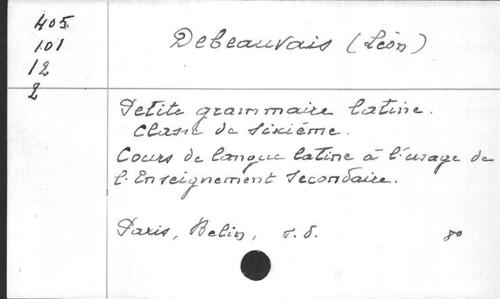 405
101
12
2
Debeauvais (Léon)
Petite grammaire latine.
Classe de sixième.
Cours de langue latine à l'usage de
l'Enseignement secondaire.
Paris, Belin, s.d. 8º